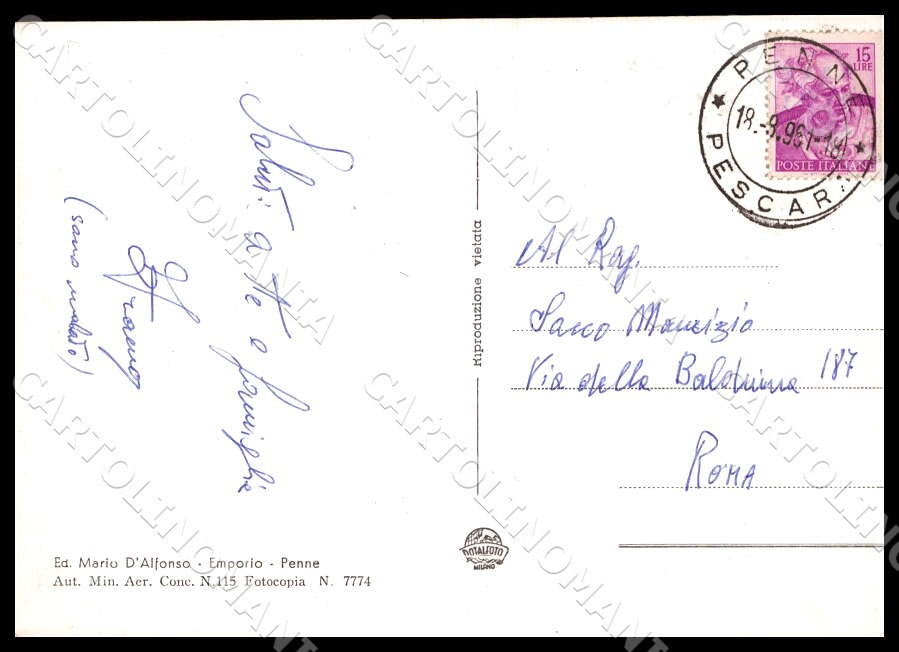 Saluti a te e famiglia
Franco
(sono malato)
Ed. Mario D'Alfonso - Emporio - Penne
Aut. Min. Aer. Conc. N.115 Fotocopia N. 7774
Riproduzione vietata
PENNE
PESCARA
18.-8.961-18
15
LIRE
POSTE ITALIANE
Al Rag.
Sacco Maurizio
Via della Balduina 187
ROMA
ROTALFOTO
MILANO
CARTOLINOMANIA